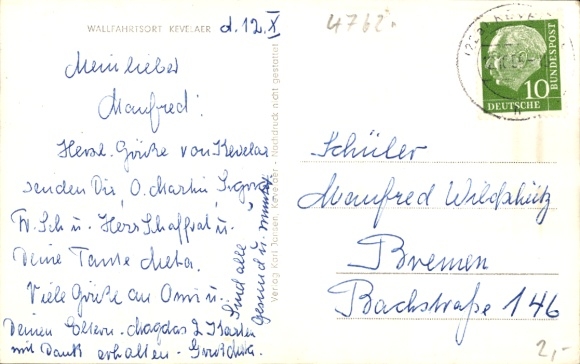 WALLFAHRTSORT KEVELAER
d. 12. X
Mein lieber
Manfred!
Herzl. Grüße von Kevelar
senden Dir, O. Martin,
Fr. Sch u. Herr Schaffrat u.
Deine Tante Meta.
Viele Grüße an Omi u.
Deinen Eltern. Magdas 2 Karten
mit Dank erhalten.
Sind alle
Gesund u. munter.
Verlag Karl Jansen, Kevelaer - Nachdruck nicht gestattet
4762.
10
DEUTSCHE
BUNDESPOST
Schüler
Manfred Wildschütz
Bremen
Bachstraße 146
2,-